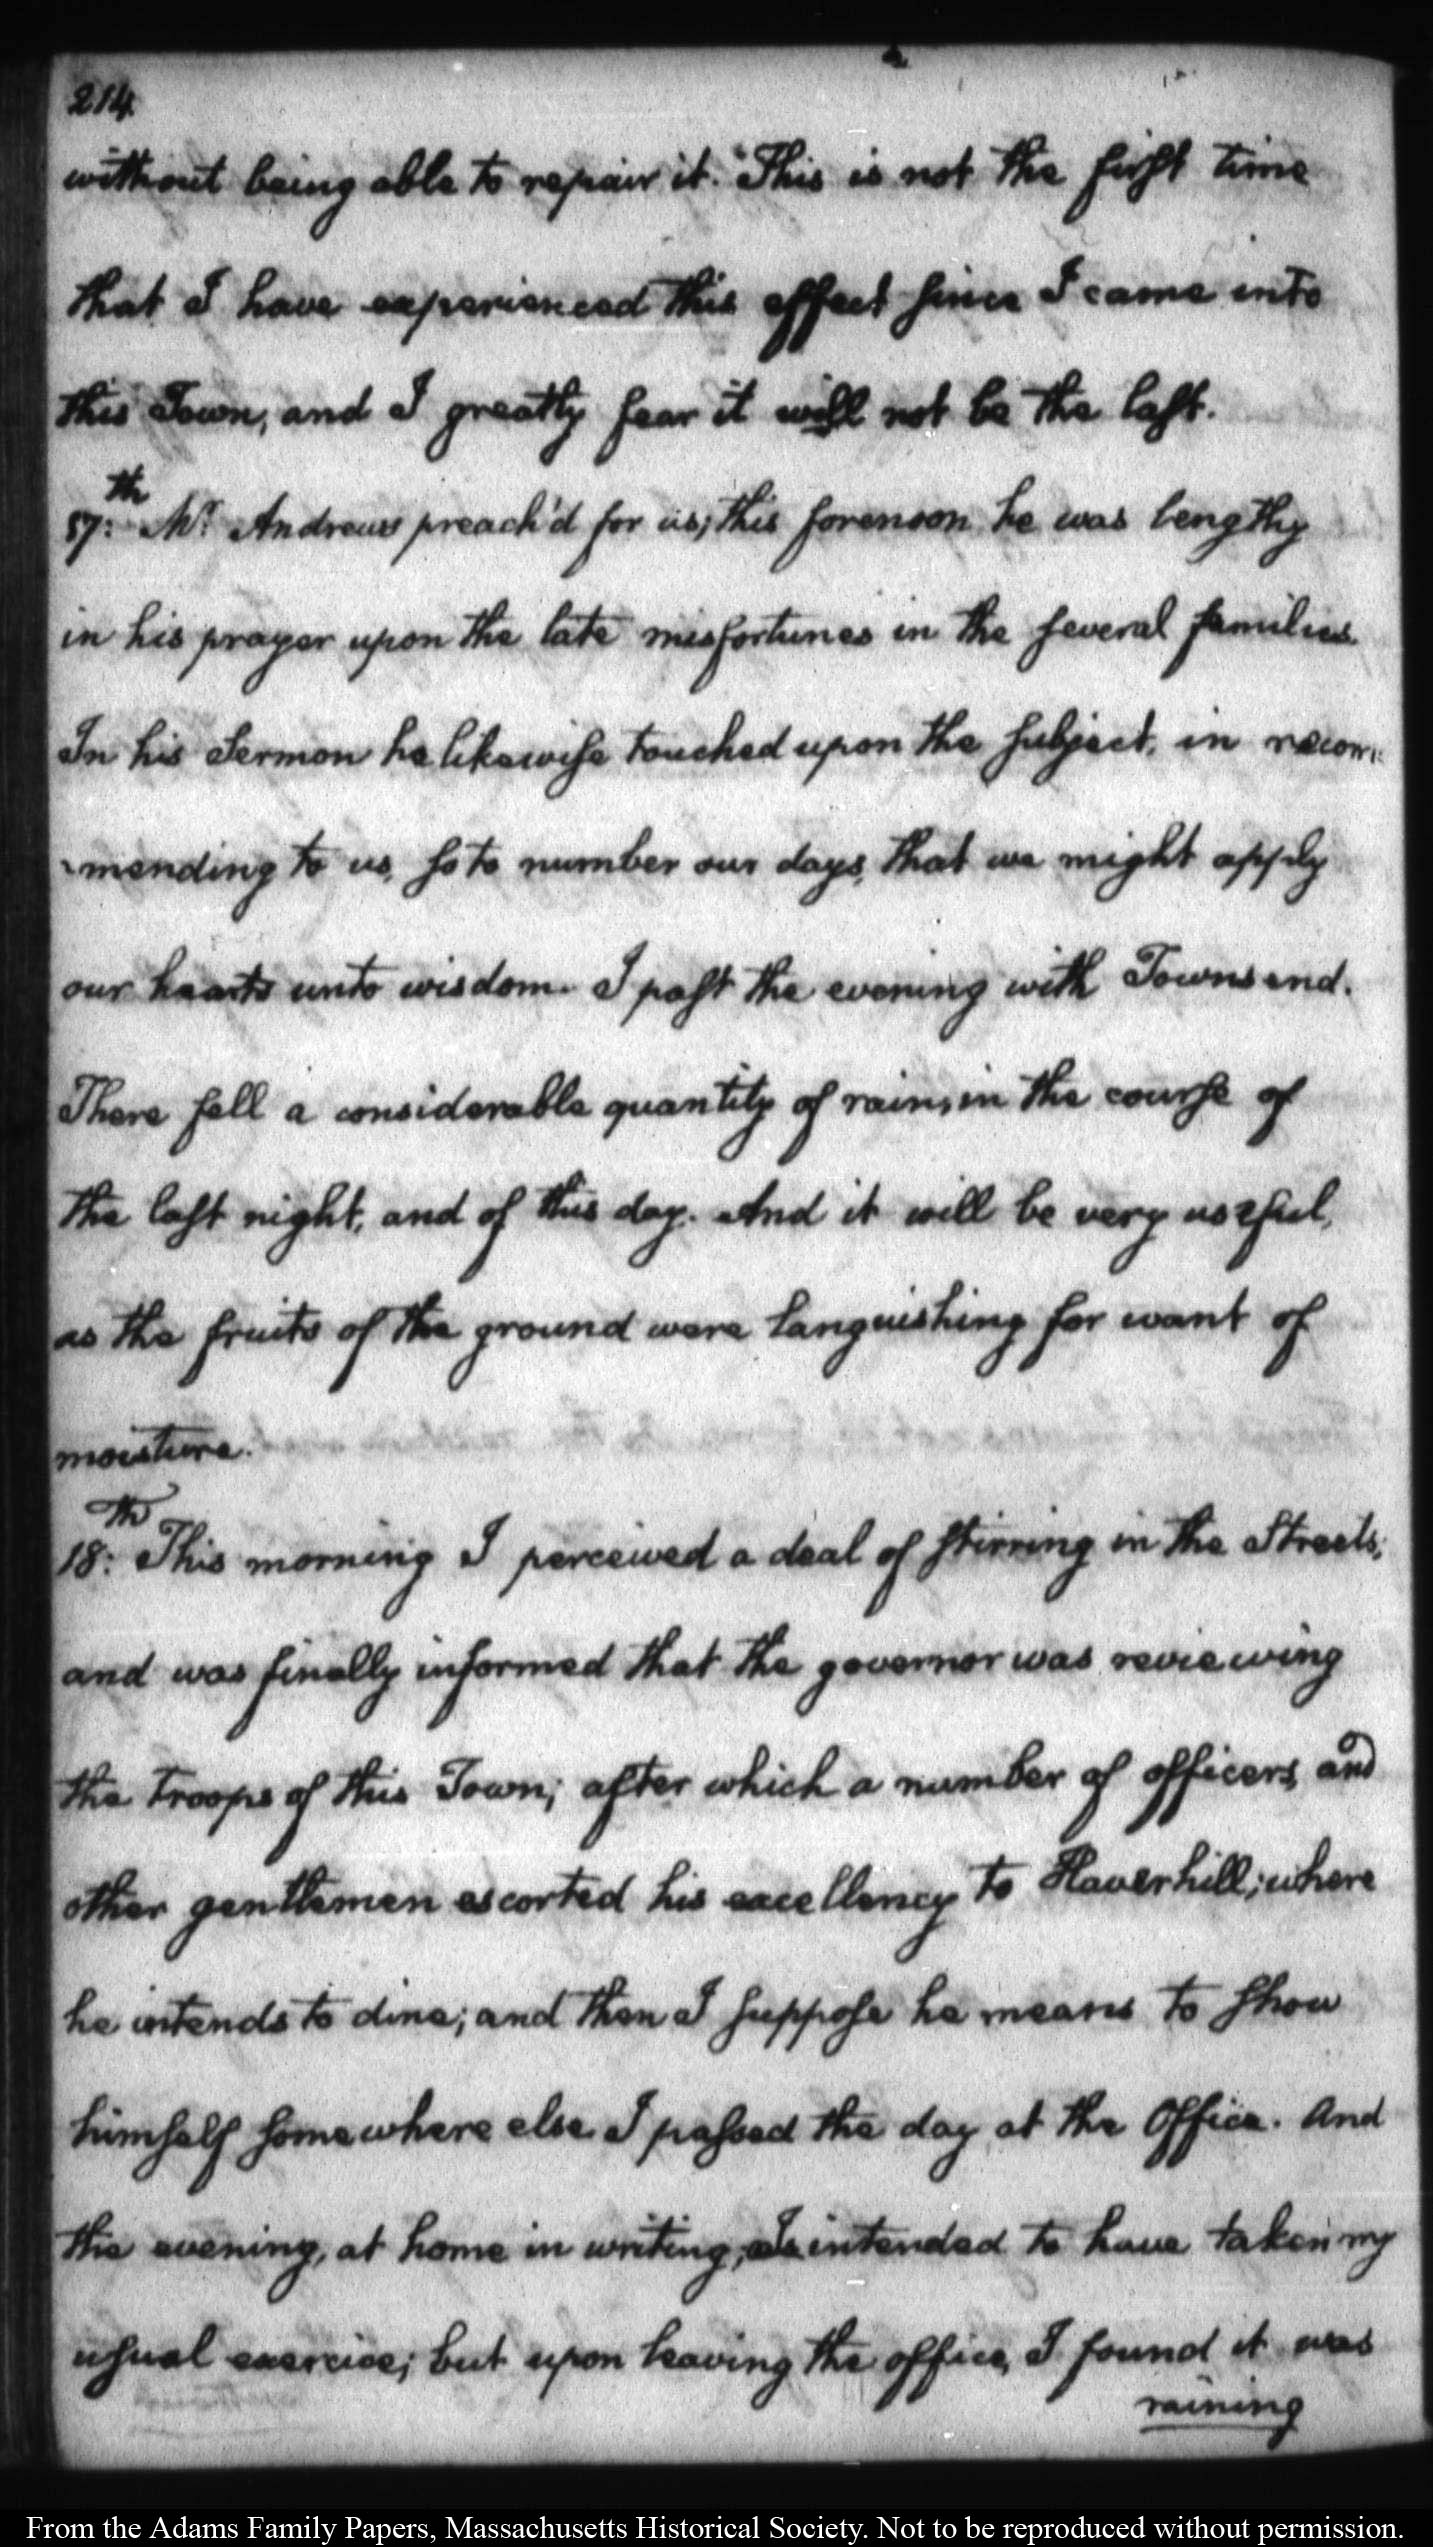 214.
without being able to repair it. This is not the first time
that I have experienced this effect since I came into
this Town, and I greatly fear it will not be the last.
17:th Mr. Andrews preach'd for us; this forenoon he was lengthy
in his prayer upon the late misfortunes in the several families.
In his Sermon he likewise touched upon the subject, in recom-
-mending to us, so to number our days, that we might apply
our hearts unto wisdom. I past the evening with Townsend.
There fell a considerable quantity of rain, in the course of
the last night, and of this day. And it will be very useful,
as the fruits of the ground were languishing for want of
moisture.
18:th This morning I perceived a deal of stirring in the Streets;
and was finally informed that the governor was reviewing
the troops of this Town; after which a number of officers, and
other gentlemen escorted his excellency to Haverhill; where
he intends to dine; and then I suppose he means to show
himself somewhere else. I passed the day at the Office. And
the evening, at home in writing, I intended to have taken my
usual exercise; but upon leaving the office, I found it was
raining
From the Adams Family Papers, Massachusetts Historical Society. Not to be reproduced without permission.